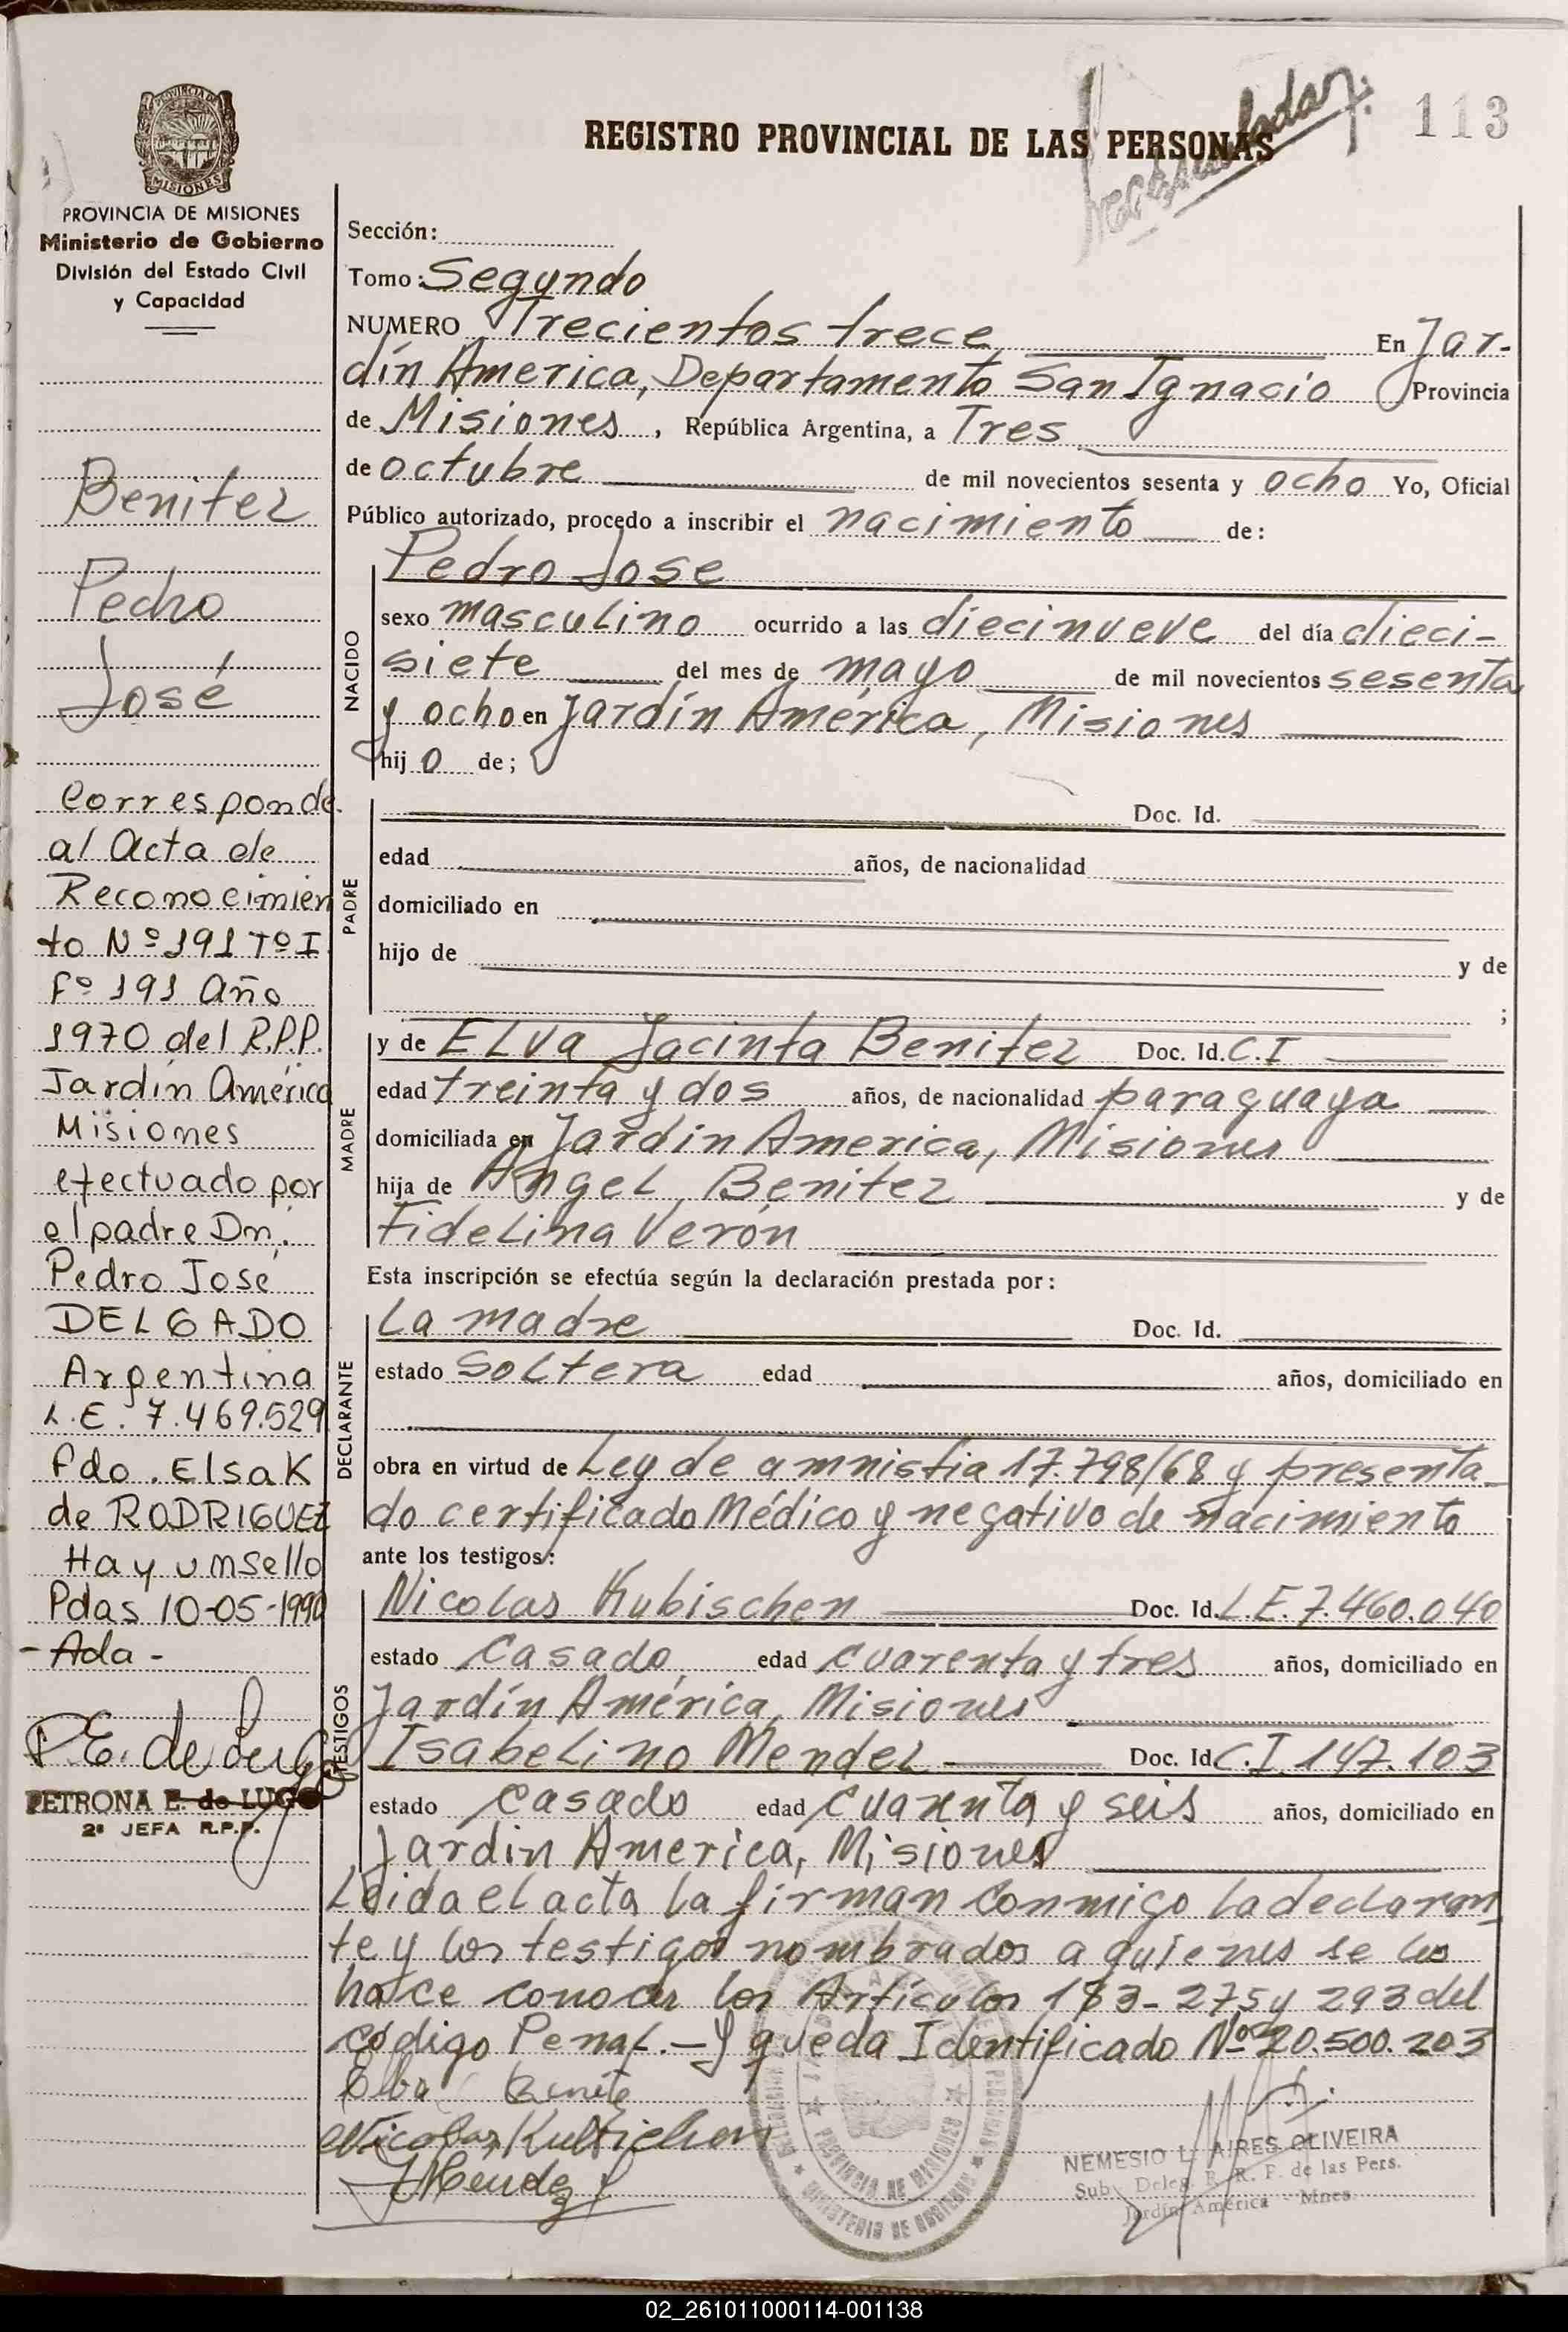 113
REGISTRO PROVINCIAL DE LAS PERSONAS
PROVINCIA DE
MISIONES
PROVINCIA DE MISIONES
Ministerio de Gobierno
División del Estado Civil
y Capacidad
Benitez
Pedro
José
Corresponde
al Acta de
Reconocimien
to Nº 191 Tº I
Fº 191 Año
1970 del R.P.P.
Jardín América
Misiones
efectuado por
el padre Dn.
Pedro José
DELGADO
Argentina
L.E. 7.469.529
Fdo. Elsa K
de RODRIGUEZ
Hay un sello
Pdas 10-05-1990
- Ada -
P.E. de Lugo
PETRONA E. de LUGO
2ª JEFA R.P.P.
Sección:
Tomo: Segundo
NUMERO Trecientos trece En Jar-
dín America, Departamento San Ignacio Provincia
de Misiones, República Argentina, a Tres
de octubre de mil novecientos sesenta y ocho Yo, Oficial
Público autorizado, procedo a inscribir el nacimiento de:
NACIDO
Pedro Jose
sexo masculino ocurrido a las diecinueve del día dieci-
siete del mes de mayo de mil novecientos sesenta
y ocho en Jardín América, Misiones
hij o de;
PADRE
Doc. Id.
edad años, de nacionalidad
domiciliado en
hijo de y de
;
MADRE
y de ELva Jacinta Benitez Doc. Id. C.I
edad treinta y dos años, de nacionalidad paraguaya
domiciliada en Jardin America, Misiones
hija de Angel Benitez y de
Fidelina Verón
Esta inscripción se efectúa según la declaración prestada por:
DECLARANTE
La madre Doc. Id.
estado Soltera edad años, domiciliado en
obra en virtud de Ley de amnistia 17.798/68 y presenta-
do certificado Médico y negativo de nacimiento
ante los testigos:
TESTIGOS
Nicolas Kubischen Doc. Id. L.E. 7.460.040
estado Casado edad cuarenta y tres años, domiciliado en
Jardín América, Misiones
Isabelino Mendez Doc. Id. C.I 147.103
estado Casado edad cuarenta y seis años, domiciliado en
Jardin America, Misiones
Leida el acta la firman conmigo la declaran
te y los testigos nombrados a quienes se les
hace conocer los Artículos 183-275 y 293 del
código Penal.- Y queda Identificado Nº 20.500.203
Elba Benite
Nicolas Kubischen
I Mendez
PROVINCIA DE MISIONES
MINISTERIO DE GOBIERNO
NEMESIO L. AIRES OLIVEIRA
Sub Deleg. R. P. de las Pers.
Jardín América - Mnes.
02_261011000114-001138